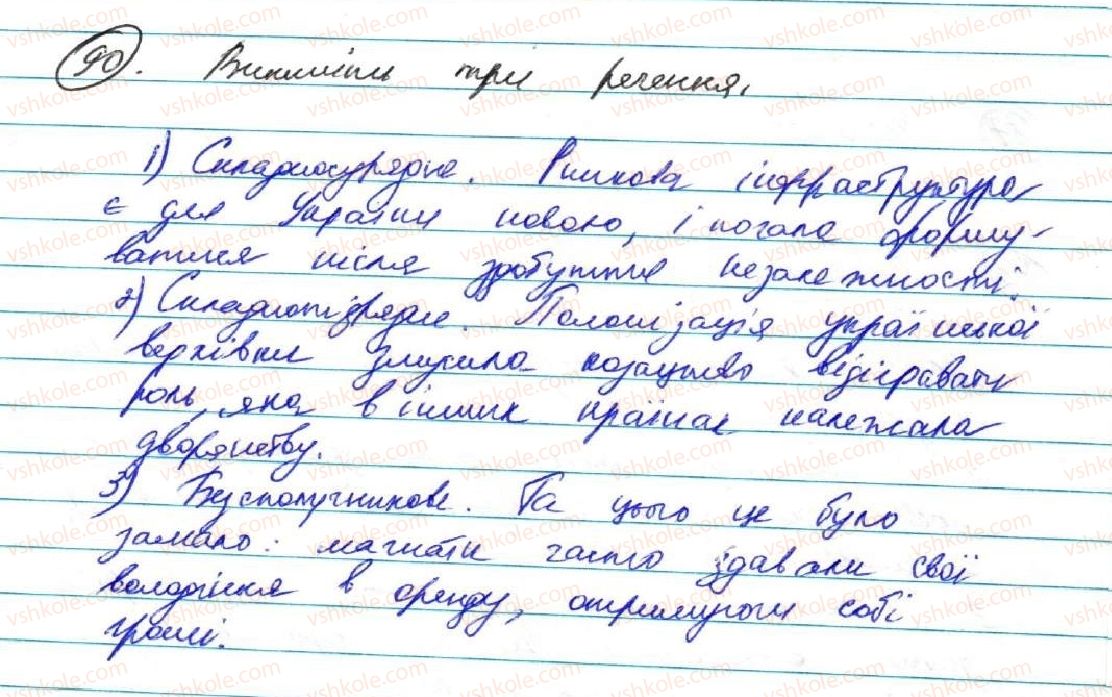 90. Випишіть три речення.
1) Складносурядне. Ринкова інфраструктура
є для України новою, і почала форму-
ватися після здобуття незалежності.
2) Складнопідрядне. Полонізація української
верхівки змусила козацтво відігравати
роль, яка в інших країнах належала
дворянству.
3) Безсполучникове. Та цього ще було
замало: магнати часто здавали свої
володіння в оренду, отримуючи собі
гроші.